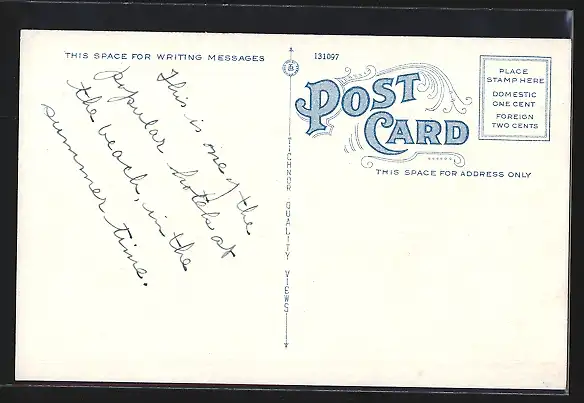 THIS SPACE FOR WRITING MESSAGES
This is one of the
popular hotels at
the beach, in the
summer time.
TICHNOR QUALITY VIEWS
131097
POST
CARD
PLACE
STAMP HERE
DOMESTIC
ONE CENT
FOREIGN
TWO CENTS
THIS SPACE FOR ADDRESS ONLY